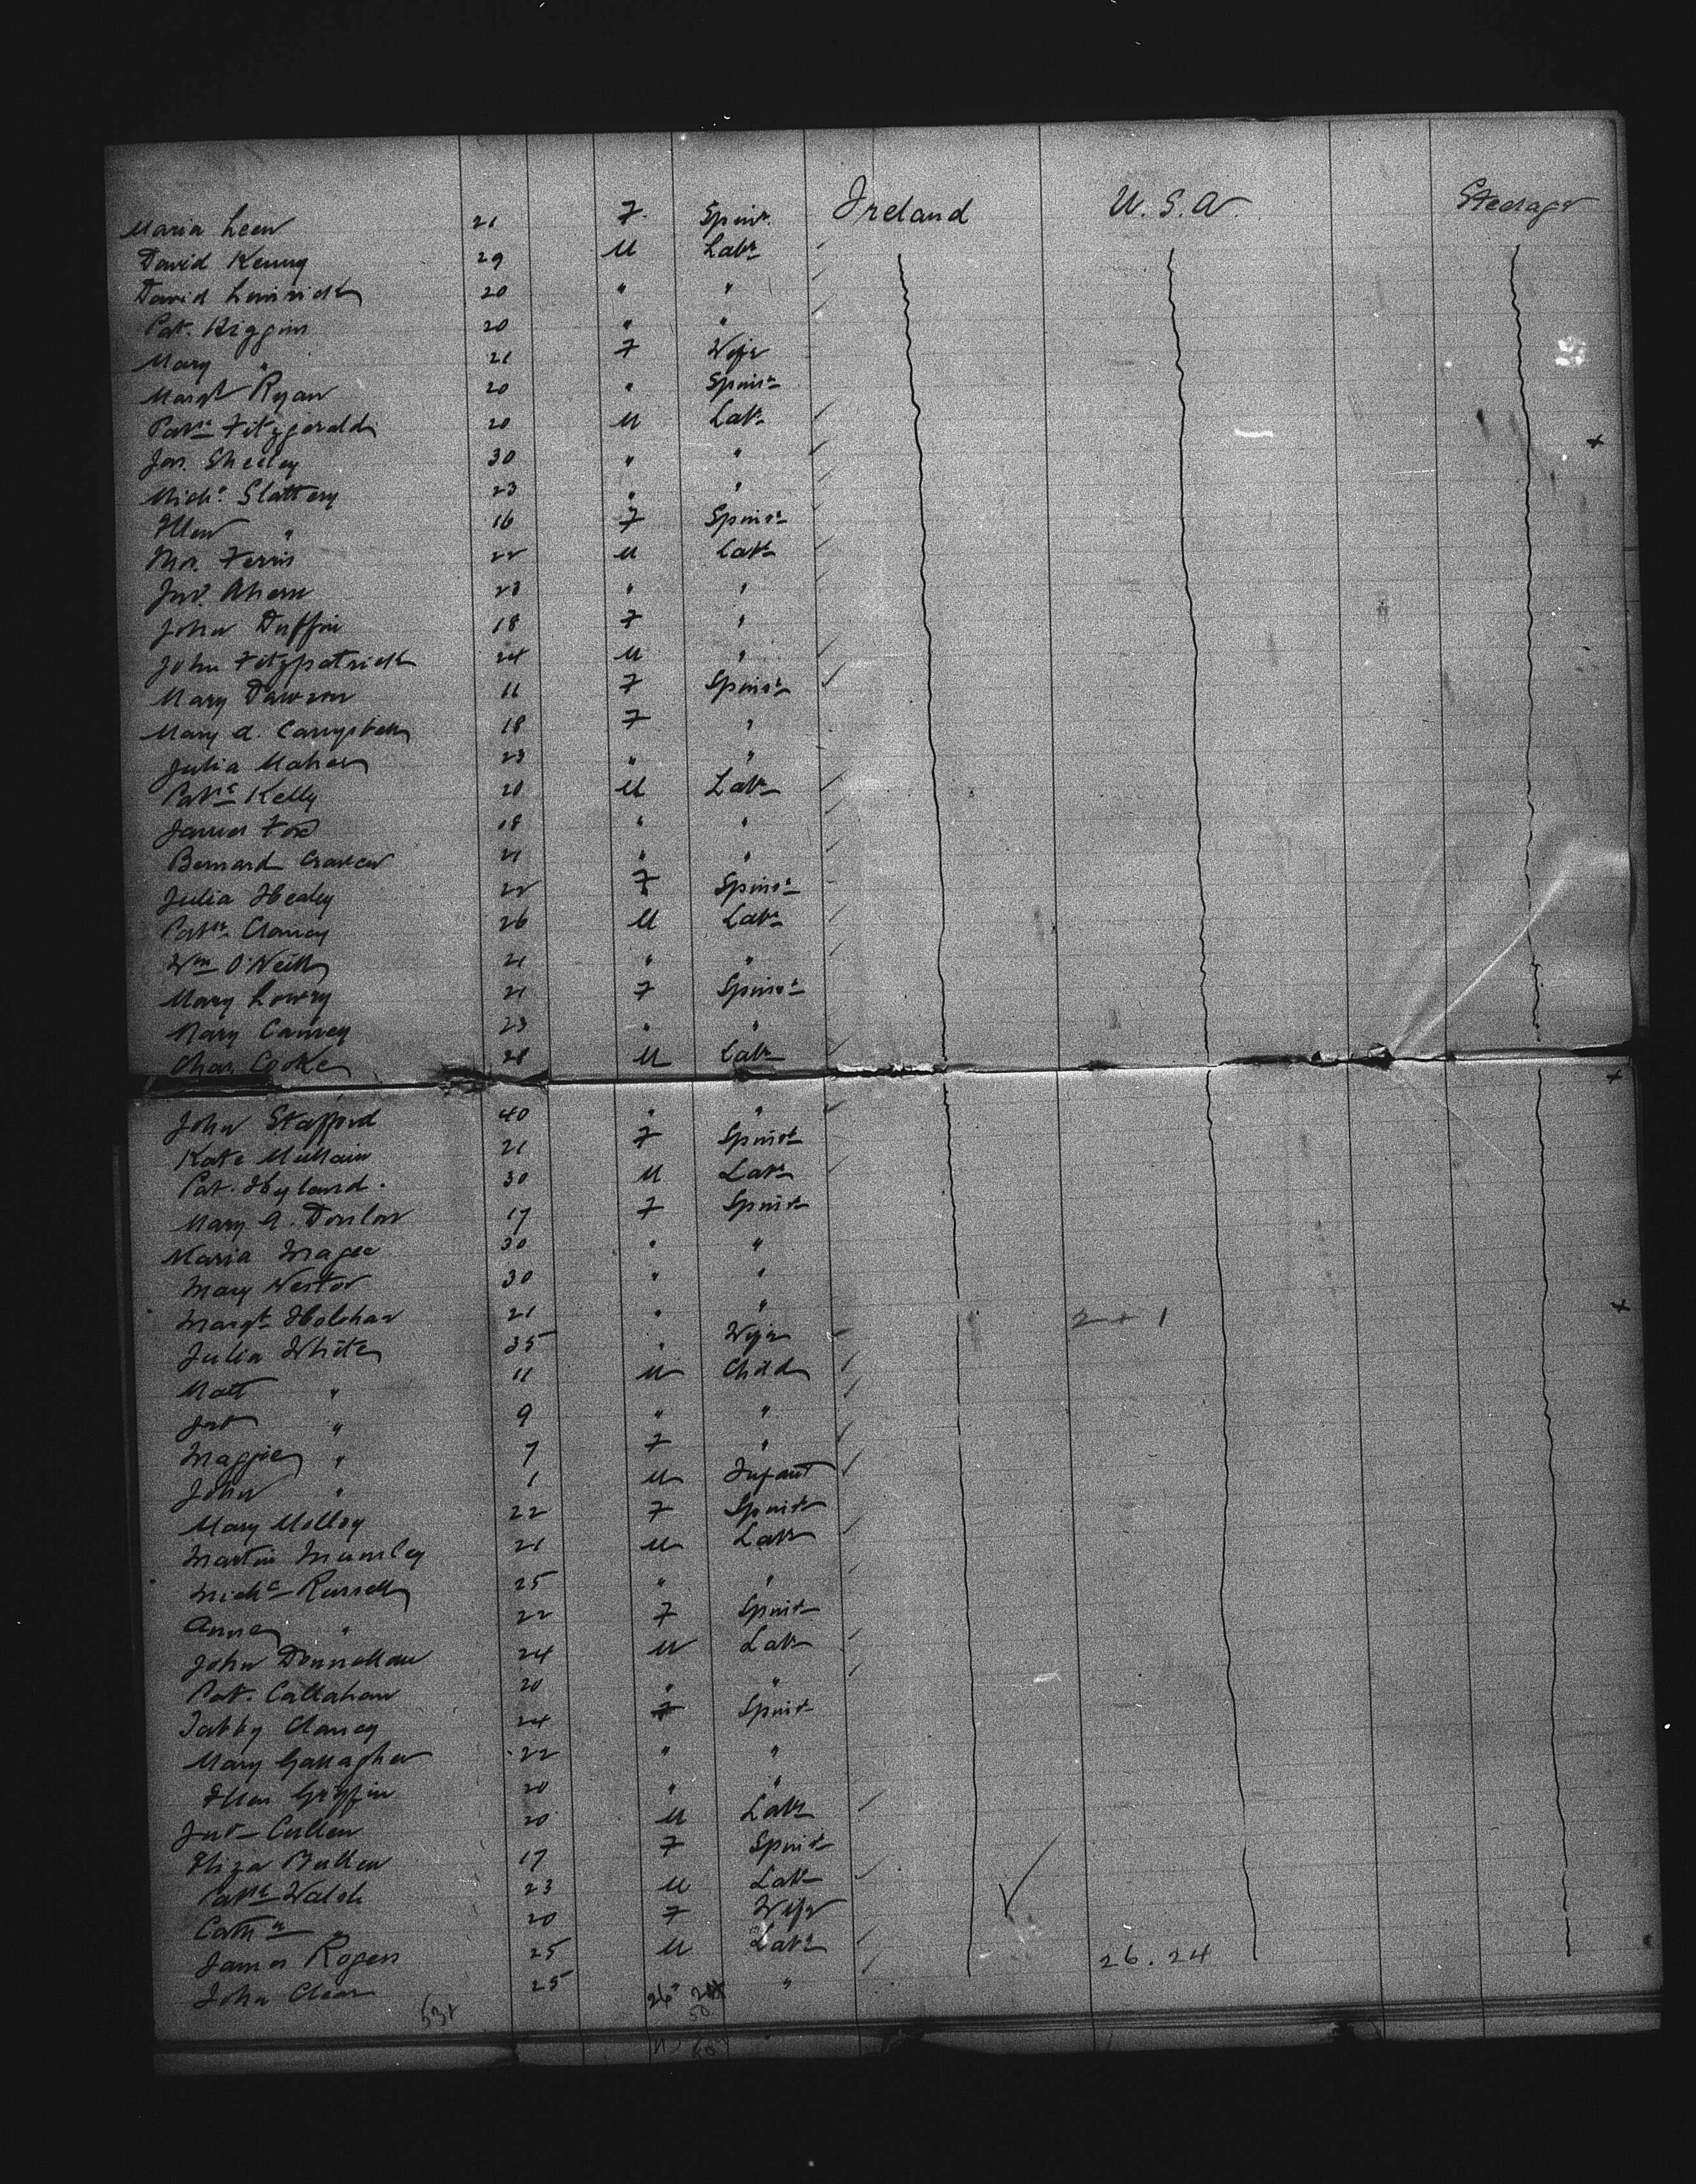 Maria Leen 21 F. Spinr. Ireland U.S.A. Steerage
David Kenny 29 M Labr
David Limrick 20 " "
Pat. Higgins 20 " "
Mary " 21 F Wife
Margt Ryan 20 " Spinsr
Patk Fitzgerald 20 M Labr
Jas. Sheeley 30 " "
Michl. Slattery 23 " "
Ellen " 16 F Spinsr
Thos. Ferris 22 M Labr
Jno. Ahern 23 " "
John Duffin 18 F "
John Fitzpatrick 24 M "
Mary Dawson 11 F Spinsr
Mary A. Campbell 18 F "
Julia Maher 23 " "
Patk Kelly 20 M Labr
James Fox 18 " "
Bernard Craven 21 " "
Julia Healey 22 F Spinsr
Patk Clancy 26 M Labr
Wm O'Neill 21 " "
Mary Lowry 21 F Spinsr
Mary Canney 23 " "
Chas Cooke 28 M Labr
John Stafford 40 " "
Kate 21 F Spinst
Pat. Hyland. 30 M Labr
Mary A. Donlon 17 F Spinst
Maria Magee 30 " "
Mary Nestor 30 " "
Margt Holohan 21 " "
Julia White 35 " Wife
Matt " 11 M Child
" 9 " "
Maggie " 7 F "
John " 1 M Infant
Mary Molloy 22 F Spinst
Martin 21 M Labr
Michl Russell 25 " "
Anne " 22 F Spinst
John Donnellan 24 M Labr
Pat. Callahan 20 " "
Tabby Clancy 24 F Spinst
Mary Gallagher 22 " "
Ellen Griffin 20 " "
Jno Cullen 20 M Labr
Eliza Bullen 17 F Spinst
Patk Walsh 23 M Labr
Cathn " 20 F Wife
James Rogers 25 M Labr 26.24
John Clear 25 "
26 24
50